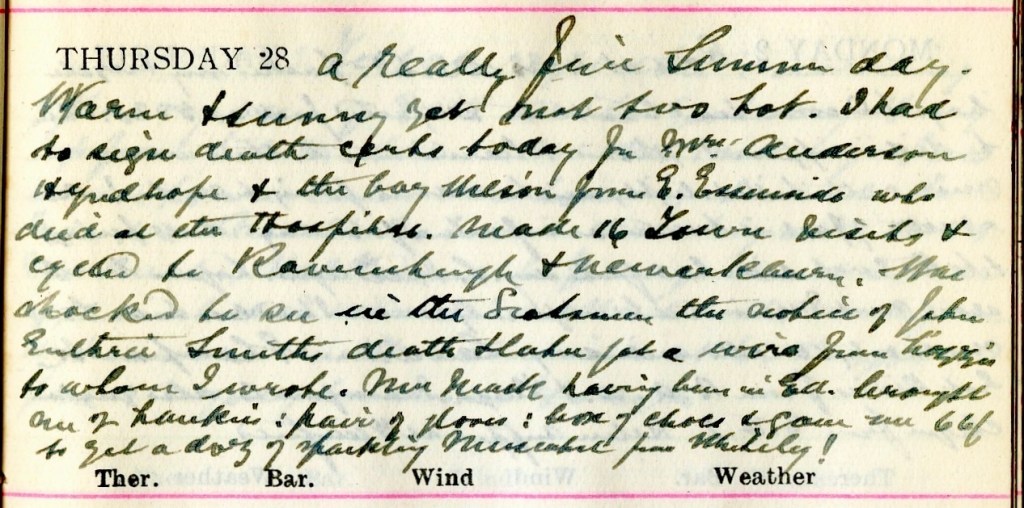 THURSDAY 28 a really fine Summer day.
Warm & sunny yet not too hot. I had
to sign death certs today for Mrs Anderson
& the boy Wilson from E. who
died at the Hospital. Made 16 Town Visits &
cycled to & Newarkburn. Was
shocked to see in the Scotsman the notice of John
Guthrie Smith's death & later got a wire from
to whom I wrote. Mrs having been in Ed. brought
me of : pair of : box of chocs & gave me 66/
to get a doz of Sparkling from !
Ther. Bar. Wind Weather